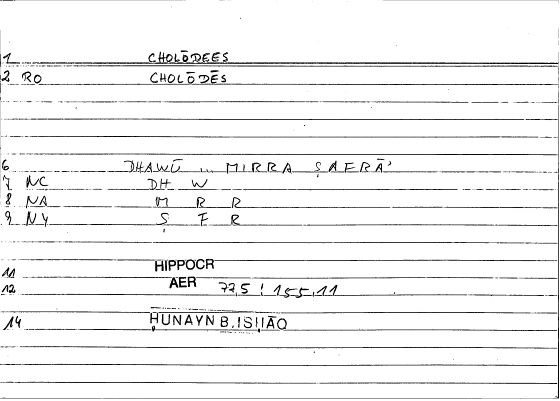 1 CHOLŌDEES
2 RO CHOLŌDĒS
6 DHAWŪ ... MIRRA ṢAFRĀʾ
7 NC DH W
8 NA M R R
9 NY Ṣ F R
11 HIPPOCR
12 AER 77,5 ; 155,11
14 ḤUNAYN B. ISḤĀQ